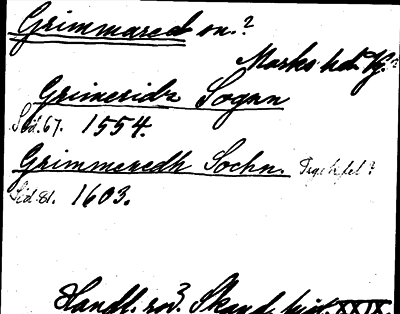 Grimmared sn.?
Marks hd. Vg.?
Grimeridz Sognn
Sid. 67. 1554.
Grimmeredh Sochn.
Sid. 81. 1603.
Handl. rör. Skand. hist. XXIX.